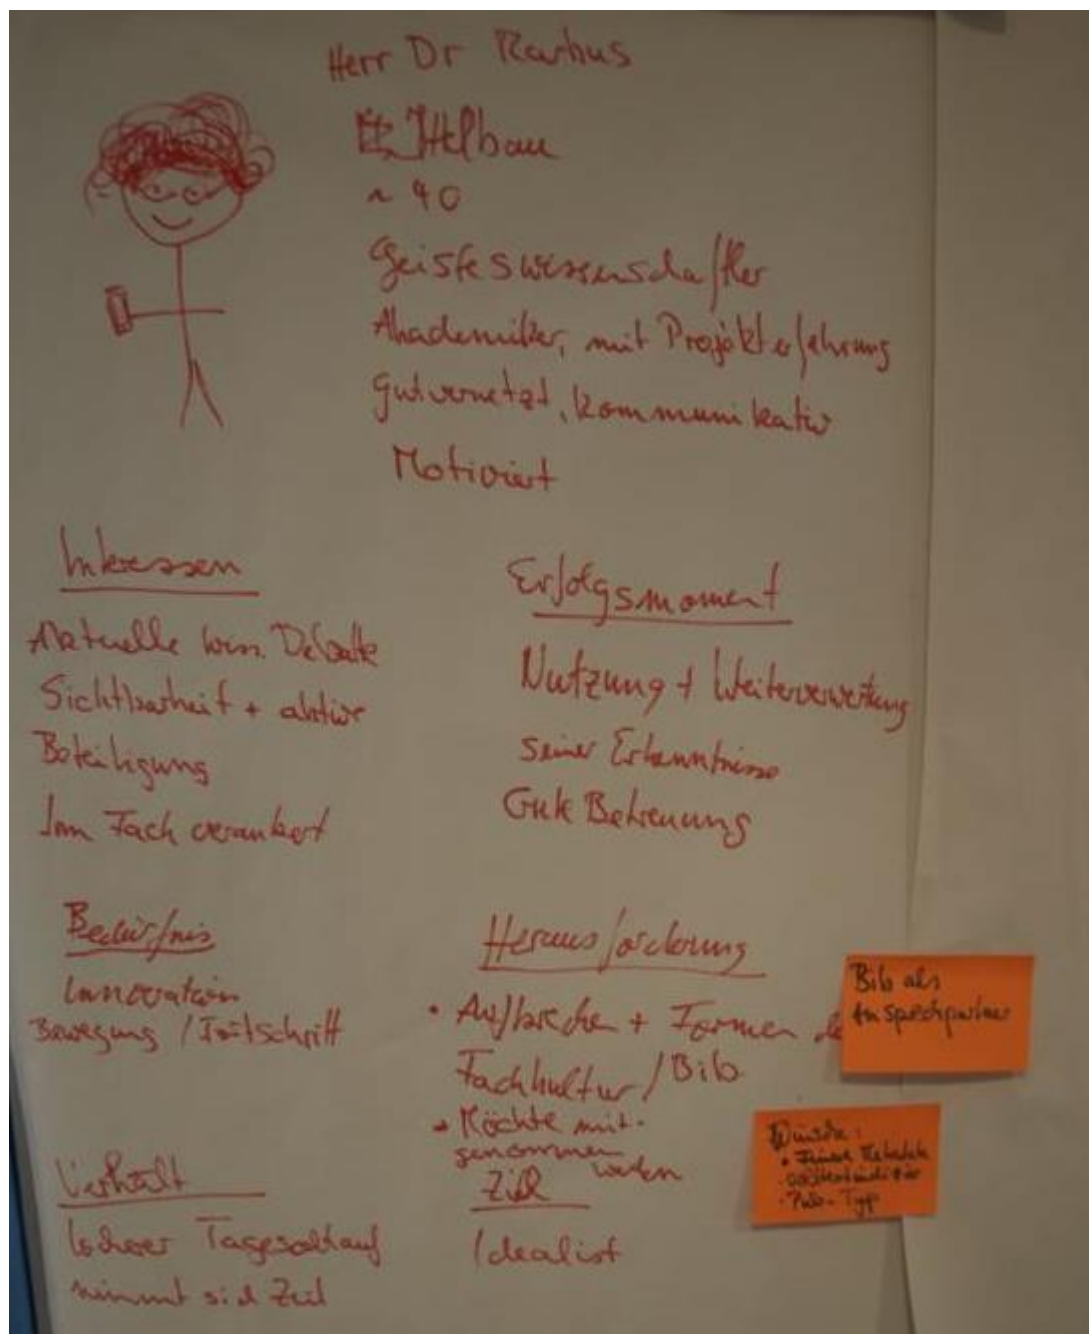 Herr Dr Markus
Mittelbau
~ 40
Geisteswissenschaftler
Akademiker, mit Projekterfahrung
gut vernetzt, kommunikativ
Motiviert
Interessen
Aktuelle wiss. Debatte
Sichtbarheit + aktive
Beteiligung
Im Fach verankert
Erfolgsmoment
Nutzung + Weiterverwertung
seiner Erkenntnisse
Gute Betreuung
Bedürfnis
Innovation
Bewegung / Fortschritt
Herausforderung
• Aufbrechen + Formen
Fachkultur / Bib
• Möchte mit-
genommen
werden
Bib als
Ansprechpartner
Wünsche:
• Pub-Typ
Verhalt
lockerer Tagesablauf
nimmt sich Zeit
Ziel
Idealist